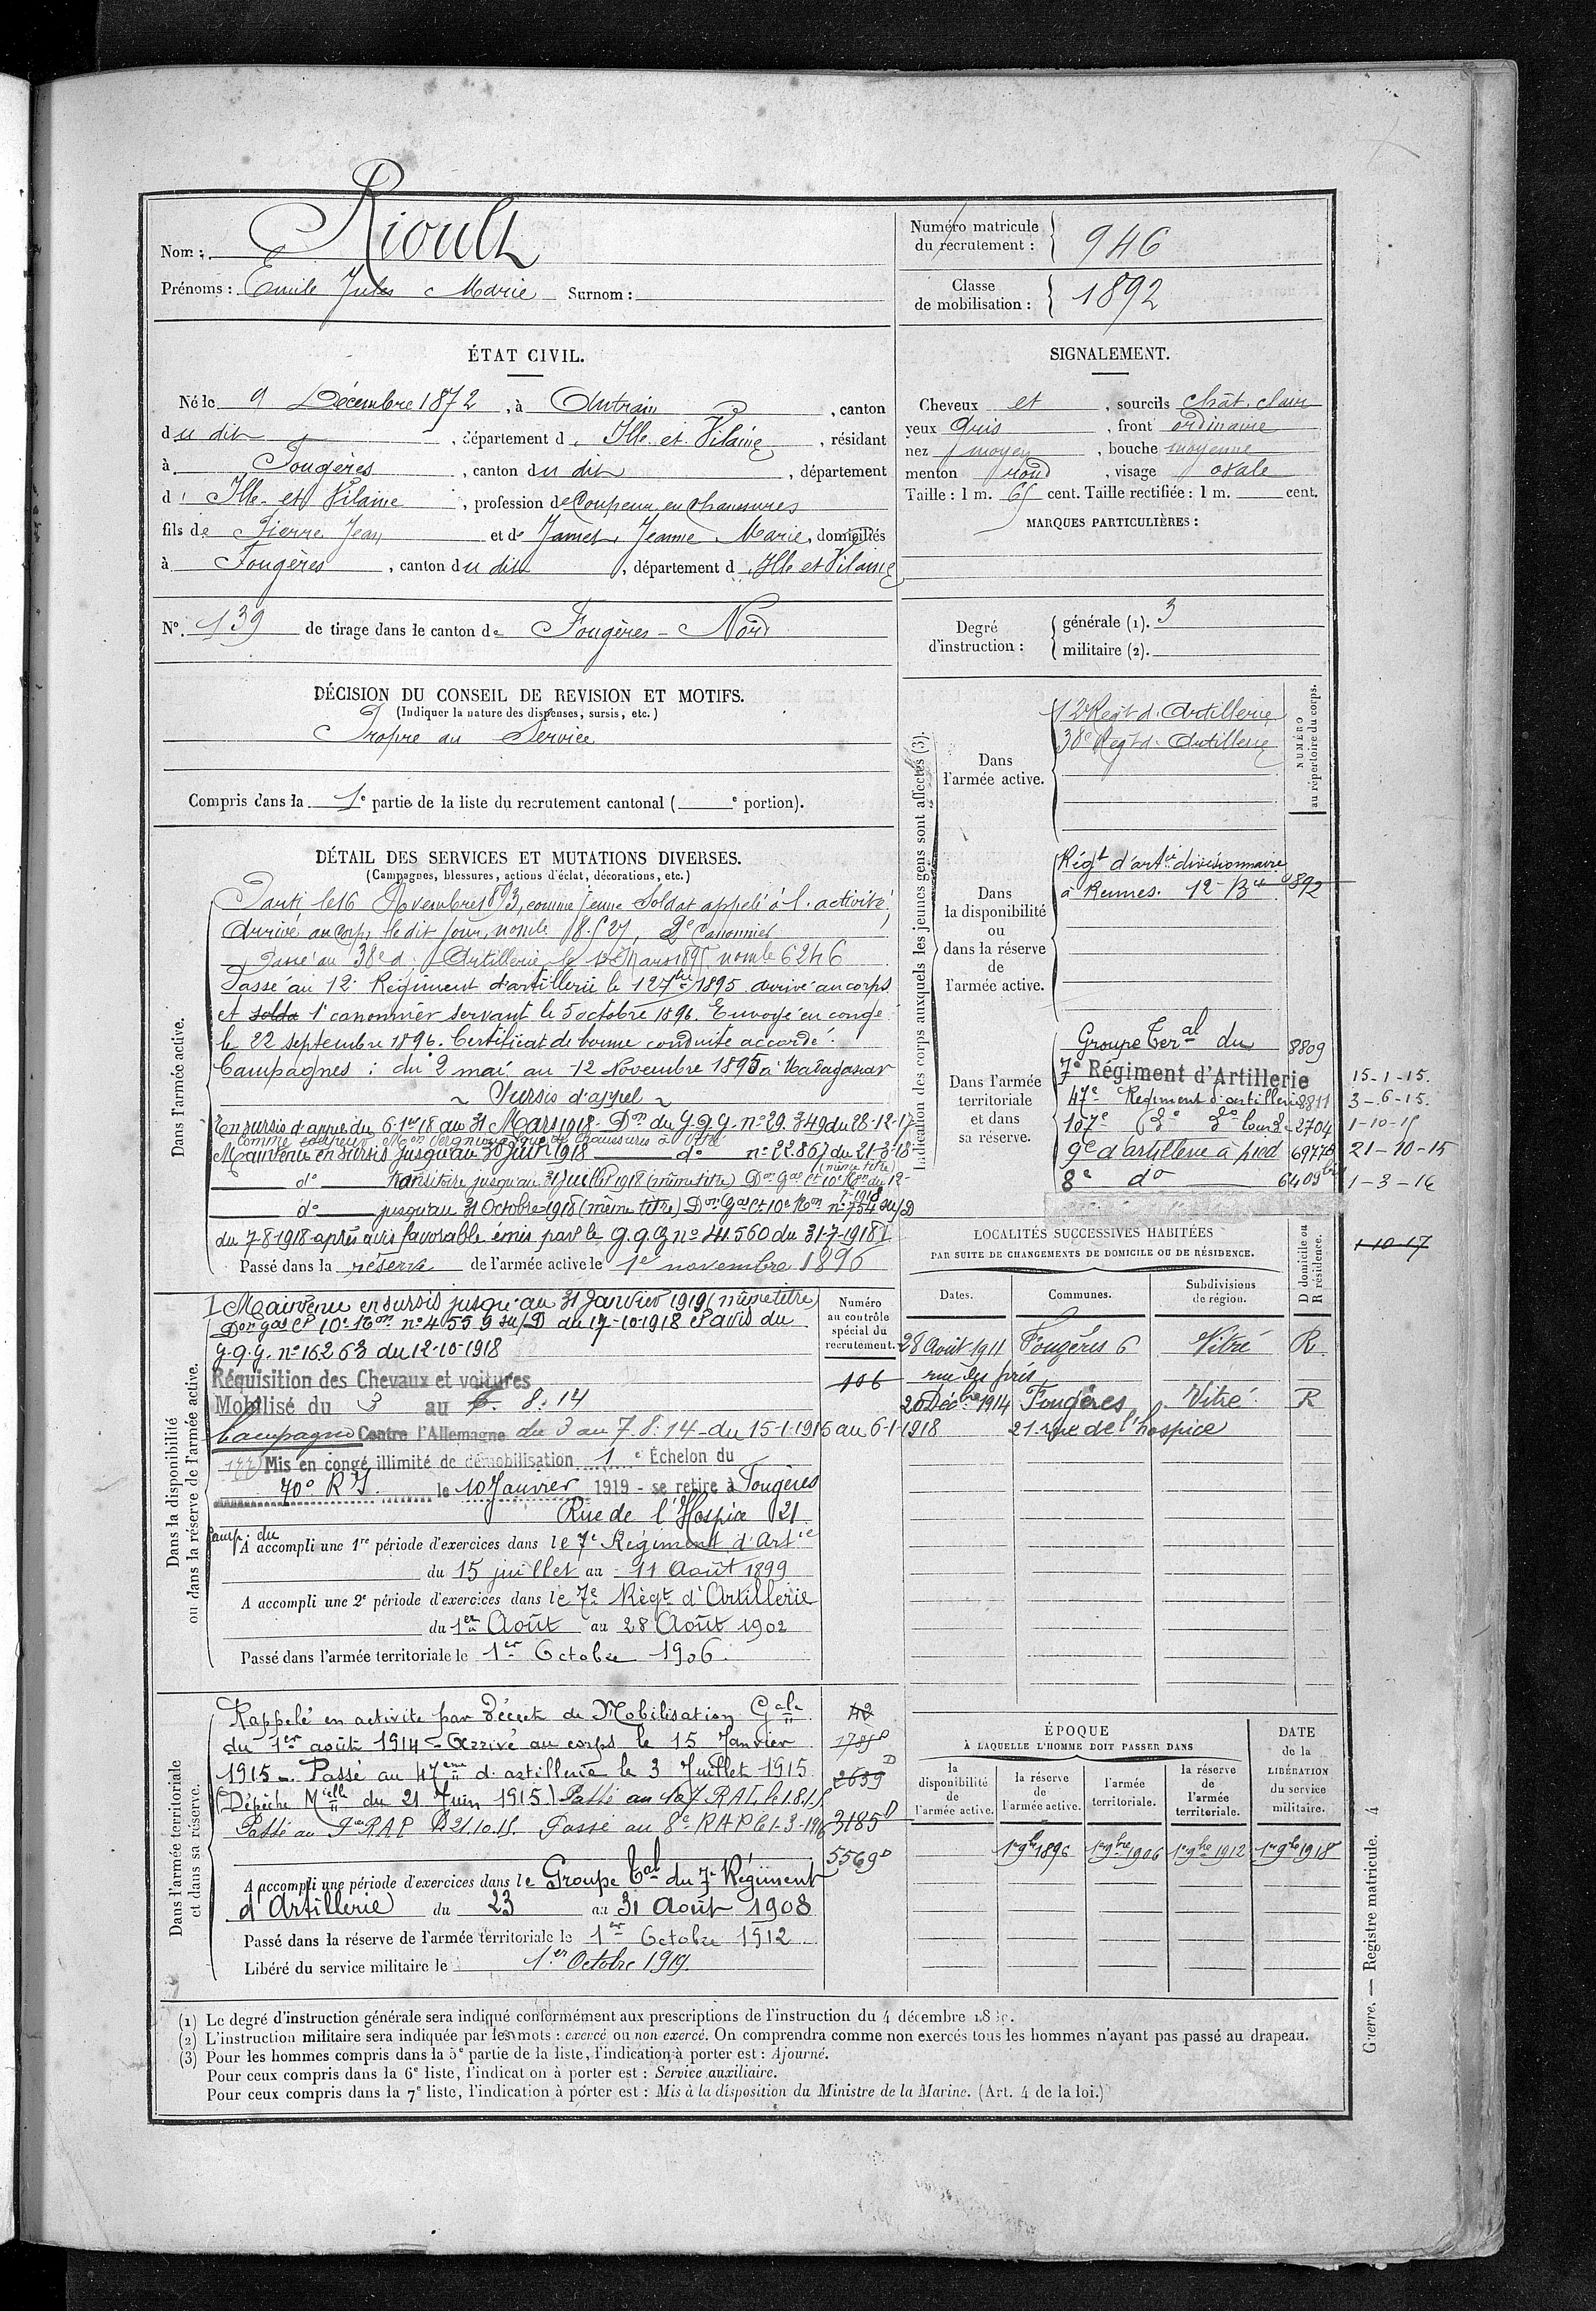 Nom : Rioult
Prénoms : Emile Jules Marie Surnom :
Numéro matricule du recrutement : 946
Classe de mobilisation : 1892
ÉTAT CIVIL.
Né le 9 Décembre 1872, à Antrain, canton
du dit, département d'Ille et Vilaine, résidant
à Fougères, canton du dit, département
d'Ille et Vilaine, profession de Coupeur en chaussures
fils de Pierre Jean et de Jamet, Jeanne Marie, domiciliés
à Fougères, canton du dit, département d'Ille et Vilaine
SIGNALEMENT.
Cheveux et, sourcils chât. clair
yeux Gris, front ordinaire
nez moyen, bouche moyenne
menton rond, visage ovale
Taille : 1 m. 65 cent. Taille rectifiée : 1 m. cent.
MARQUES PARTICULIÈRES :
N° 139 de tirage dans le canton de Fougères - Nord
Degré d'instruction : générale (1). 3
militaire (2).
DÉCISION DU CONSEIL DE REVISION ET MOTIFS.
(Indiquer la nature des dispenses, sursis, etc.)
Propre au Service
Compris dans la 1e partie de la liste du recrutement cantonal ( e portion).
DÉTAIL DES SERVICES ET MUTATIONS DIVERSES.
(Campagnes, blessures, actions d'éclat, décorations, etc.)
Dans l'armée active.
Parti le 16 Novembre 1893, comme jeune Soldat appelé à l'activité,
Arrivé au Corps le dit jour, no mle 2e Canonnier
Passé au 38e d'Artillerie le mars 1895 no mle 6246
Passé au 12e Régiment d'artillerie le 12 7bre 1895 arrivé au corps
et solda 1e canonnier servant le 5 octobre 1896. Envoyé en congé
le 22 septembre 1896. Certificat de bonne conduite accordé.
Campagnes : du 2 mai au 12 Novembre 1895 à Madagascar
~ Sursis d'appel ~
En sursis d'appel du 6-1er 18 au 31 Mars 1918 - Don du G.Q.G. no 29.349 du 28-12-17
comme coupeur chaussures à
Maintenu en sursis jusqu'au 30 Juin 1918 do no 22.867 du 21-3-18
(même titre)
do transitoire jusqu'au 31 Juillet 1918 (même titre) Don Gal Ct 10e Ron du 12-
7-1918
do jusqu'au 31 Octobre 1918 (même titre) Don Gal Ct 10e Ron no 754 su/D
du 7-8-1918 après avis favorable émis par le G.Q.G no 41.560 du 31-7-1918
Passé dans la réserve de l'armée active le 1e novembre 1896
Indication des corps auxquels les jeunes gens sont affectés (3).
NUMÉRO au répertoire du corps.
Dans l'armée active.
12e Regt d'Artillerie
38e Regt d'Artillerie
Dans la disponibilité ou dans la réserve de l'armée active.
Régt d'artie divisionnaire
à Rennes. 12- Bie 892
Dans l'armée territoriale et dans sa réserve.
Groupe Teral du 8809
7e Régiment d'Artillerie 15-1-15.
47e Régiment d'artillerie 8811 3-6-15.
107e do do lourd 2704 1-10-15
9e d'artillerie à pied 6977 21-10-15
8e do 6409 bis 1-3-16
1-10-17
Dans la disponibilité ou dans la réserve de l'armée active.
Maintenu en sursis jusqu'au 31 Janvier 1919 (même titre)
Don Gal Ct 10e Ron no 4559 su/D du 17-10-1918 et avis du
G.Q.G. no 16263 du 12-10-1918
Réquisition des Chevaux et voitures
Mobilisé du 3 au 8.14
Campagne Contre l'Allemagne du 3 au 7.8.14 - du 15-1-1915 au 6-1-1918
Mis en congé illimité de démobilisation 1e Échelon du
70e R I. le 10 Janvier 1919 - se retire à Fougères
Rue de l'Hospice 21
camp. du
A accompli une 1re période d'exercices dans le 7e Régiment d'Artie
du 15 juillet au 11 Août 1899
A accompli une 2e période d'exercices dans le 7e Régt d'Artillerie
du 1er Août au 28 Août 1902
Passé dans l'armée territoriale le 1er Octobre 1906.
Numéro au contrôle spécial du recrutement.
106
LOCALITÉS SUCCESSIVES HABITÉES
PAR SUITE DE CHANGEMENTS DE DOMICILE OU DE RÉSIDENCE.
Dates. Communes. Subdivisions de région. D domicile ou R résidence.
28 Août 1911 Fougères 6 Vitré R.
rue des prés
20 Décbre 1914 Fougères Vitré R
21 rue de l'hospice
Dans l'armée territoriale et dans sa réserve.
Rappelé en activité par Décret de Mobilisation Gale
du 1er août 1914 - Arrivé au corps le 15 Janvier
1915 - Passé au 47eme d'artillerie le 3 Juillet 1915
(Dépêche Mielle du 21 Juin 1915) Passé au 107 RAL le
Passé au 9e RAP le 21.10.15. Passé au 8e RAP le 1-3-1916
A accompli une période d'exercices dans le Groupe Tal du 7e Régiment
d'Artillerie du 23 au 31 Août 1908
Passé dans la réserve de l'armée territoriale le 1er Octobre 1912
Libéré du service militaire le 1er Octobre 1919.
42
1785D
2639D
3185D
5569D
ÉPOQUE
À LAQUELLE L'HOMME DOIT PASSER DANS
la disponibilité de l'armée active. la réserve de l'armée active. l'armée territoriale. la réserve de l'armée territoriale. DATE de la LIBÉRATION du service militaire.
1er 9bre 1896 1er 9bre 1906 1er 9bre 1912 1er 9bre 1918
(1) Le degré d'instruction générale sera indiqué conformément aux prescriptions de l'instruction du 4 décembre
(2) L'instruction militaire sera indiquée par les mots : exercé ou non exercé. On comprendra comme non exercés tous les hommes n'ayant pas passé au drapeau.
(3) Pour les hommes compris dans la 5e partie de la liste, l'indication à porter est : Ajourné.
Pour ceux compris dans la 6e liste, l'indication à porter est : Service auxiliaire.
Pour ceux compris dans la 7e liste, l'indication à porter est : Mis à la disposition du Ministre de la Marine. (Art. 4 de la loi.)
Guerre. — Registre matricule. 4